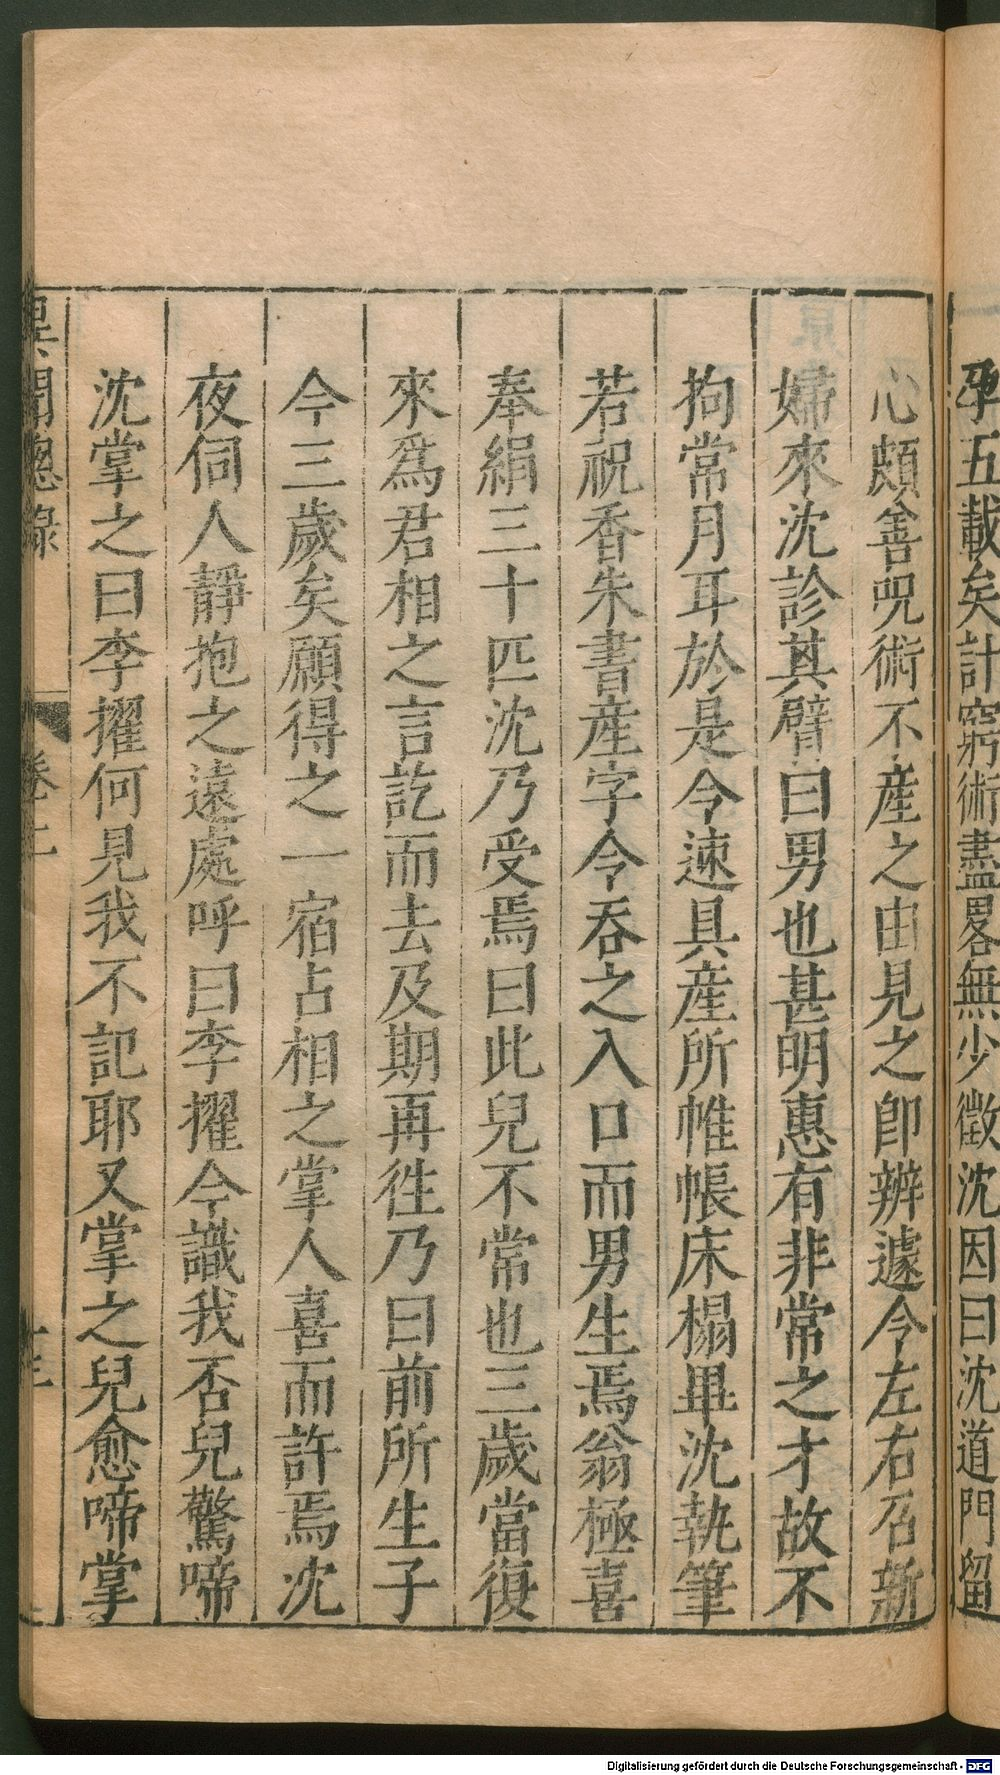 孕五載矣計窮術盡畧無少徵沈因曰沈道門留
心頗善呪術不産之由見之卽辨遽令左右召新
婦來沈診其臂曰男也甚明惠有非常之才故不
拘常月耳於是令速具産所帷帳床榻畢沈執筆
若祝香朱書産字令吞之入口而男生焉翁極喜
奉絹三十匹沈乃受焉曰此兒不常也三歲當復
來爲君相之言訖而去及期再徃乃曰前所生子
今三歲矣願得之一宿占相之掌人喜而許焉沈
夜伺人靜抱之遠處呼曰李擢今識我否兒驚啼
沈掌之曰李擢何見我不記耶又掌之兒愈啼掌
異聞總錄 卷二
Digitalisierung gefördert durch die Deutsche Forschungsgemeinschaft - DFG